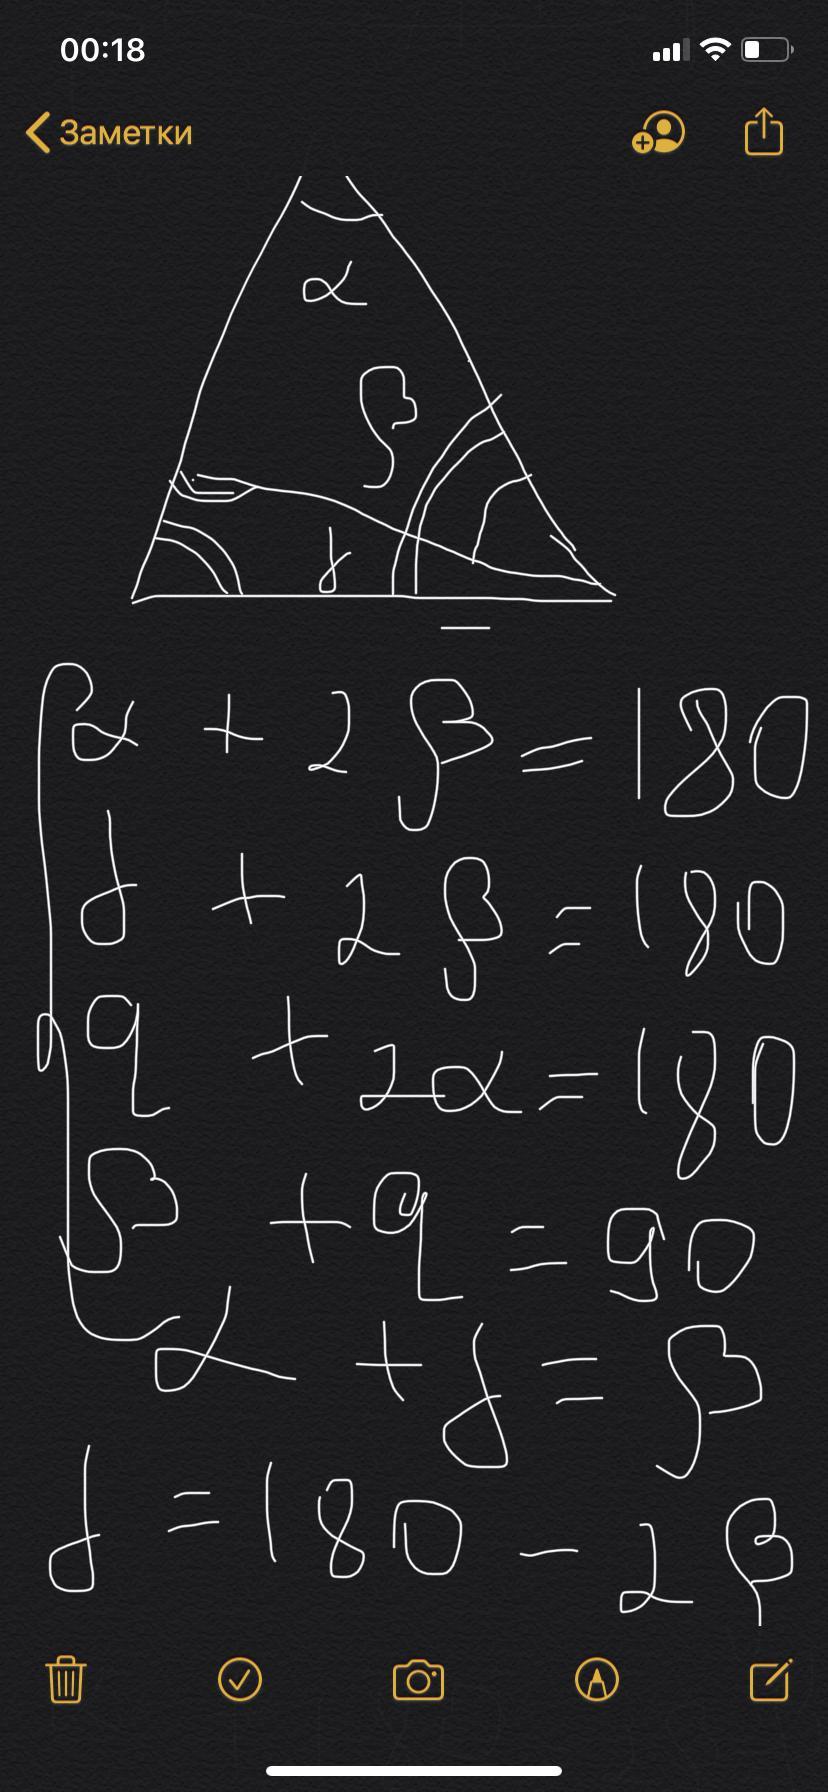 00:18
Заметки
α
β
γ
α + 2β = 180
γ + 2β = 180
q + 2α = 180
β + q = 90
α + γ = β
γ = 180 - 2β